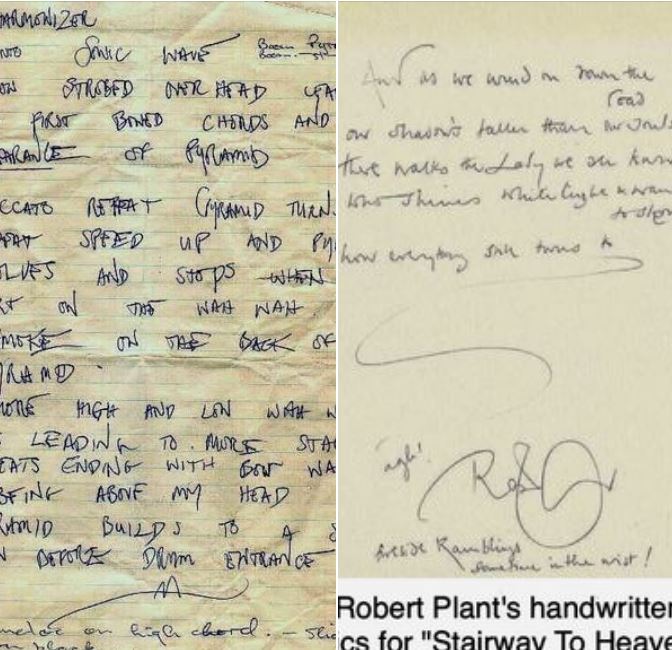 ARMONIZER
NTO SONIC WAVE
ON STROBED OVER HEAD LEA
FIRST BOWED CHORDS AND
ARANCE OF PYRAMID
CCATO REPEAT PYRAMID TURN
SPEED UP AND PY
OLVES AND STOPS WHEN
RT ON THE WAH WAH
SMOKE ON THE BACK OF
YRAMID
MORE HIGH AND LOW WAH W
S LEADING TO MORE STA
EATS ENDING WITH BOW WA
BEING ABOVE MY HEAD
RAMID BUILDS TO A
N BEFORE DRUM ENTRANCE
on high chord.
And as we wind on down the
road
our shadows taller than our souls
there walks the Lady we all know
who shines white light n wan
to show
how everything still turns to
ugh!
Ramblings
sometime in the mist!
Robert Plant's handwritten
ics for "Stairway To Heave